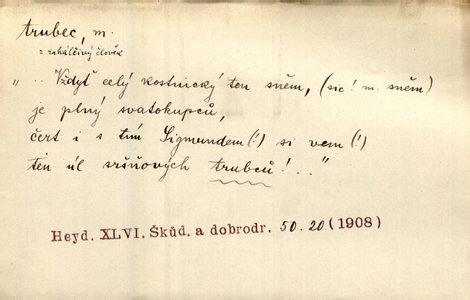 trubec, m.
= zahálčivý člověk
„ .. Vždyť celý kostnický ten sněm, (sic! m. sněm)
je plný svatokupců,
čert i s tím Sigmundem (!) si vem (!)
ten úl sršňových trubců! .. "
Heyd. XLVI. Škůd. a dobrodr. 50. 20. (1908)